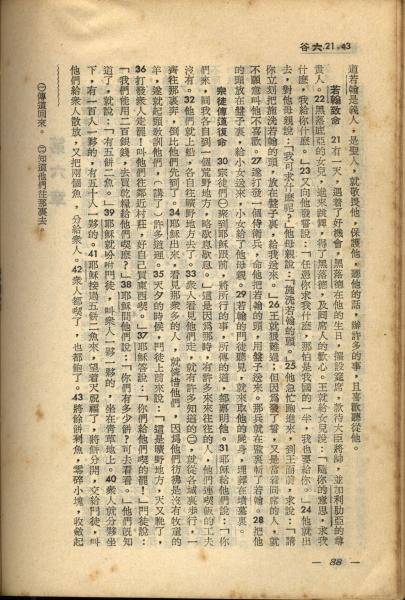 谷六 21,43
道若翰是義人，是聖人，就敬畏他，保護他，聽他的話，辦許多的事，且喜歡聽從他。
若翰致命 21有一天，遇着了好機會，黑落德在他的生日，擺設筵席，款待大臣將帥，並加利肋亞的尊
貴人。22黑落底亞的女兒，進來跳舞，得了黑落德，及同席人的歡心。王就給女兒說：「隨你的意思，求我
什麼，我給你什麼。」23又向他發誓說：「任憑你求我什麼，那怕是我國的一半，我也要給你。」24他就出
去，對他母親說：「我可求什麼呢？」他母親說：「施洗若翰的頭。」25他急忙跑進來，到王面前，求說：「請
你立刻把施洗若翰的頭，放在盤子裏，給我送來。」26王就狠難過；但因為發了誓，又是當着同席的人，就
不願意叫他不喜歡。27遂打發一個侍衛兵，命他把若翰的頭，用盤子送來。那兵就在監裏斬了若翰。28把他
的頭放在盤子裏，給小女送來，小女給了他母親。29若翰的門徒聽見，就來取他的屍身，埋葬在墳墓裏。
宗徒傳道復命 30宗徒們㊀聚到耶穌跟前，將所行的事，所傳的道，都稟明他。31耶穌給他們說：「你
們來，同我各自到一個荒野地方，略歇息歇息。」這是因爲那時，有許多來來往往的人，他們連喫飯的工夫
沒有。32他們就上船，各自往曠野地方去了。33衆人看見他們走，就有許多知道的㊁，就從各城裏步行，一
齊往那裏奔，倒比他們先到了。34耶穌出來，看見那衆多的人，就憐惜他們，因爲他們彷彿是沒有牧童的
羊，遂就起頭教訓他們，（講了）許多道理。35天夕的時候，門徒上前來說：「這是曠野地方，天又晚了，
36打發衆人走罷！叫他們往鄰近村莊，好自己買東西喫。」37耶穌答說：「你們給他們喫的罷！」門徒說：
「我們能用二百銀錢，去買乾糧給他們喫麼？」38耶穌問他們說：「你們有多少餅？可去看看。」他們既知
道了，就說：「有五餅二魚。」39耶穌就吩咐門徒，叫衆人一夥一夥的，坐在青草地上。40衆人就分夥坐
下，有一百人一夥的，有五十人一夥的。41耶穌接過五餅二魚來，望着天祝福了，將餅分開，交給門徒，叫
他們給衆人散放；又把兩個魚，分給衆人。42衆人都喫了，也都飽了。43將餘餅剩魚，零碎小塊，收斂起
㊀傳道回來。 ㊁知道他們往那裏去
— 88 —